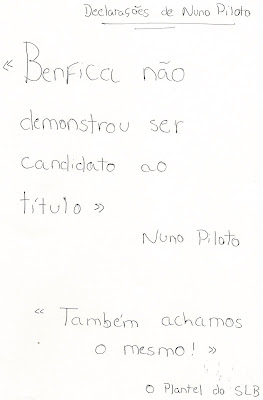 Declarações de Nuno Piloto
« Benfica não
demonstrou ser
candidato ao
título »
Nuno Piloto
" Também achamos
o mesmo! »
O Plantel do SLB